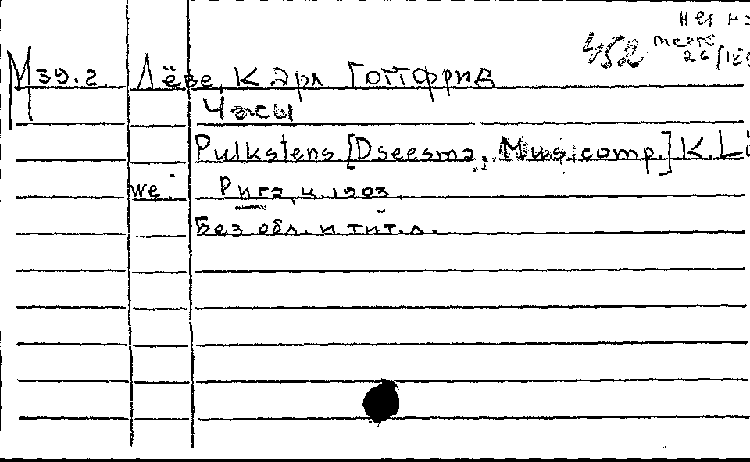 нет на
452 месте
26/
М39.2 Лёве, Карл Готтфрид
Часы
Pulkstens [Dseesma, Mus. comp.] K. Li
we. Рига, ц. 1903
Без обл. и тит. л.